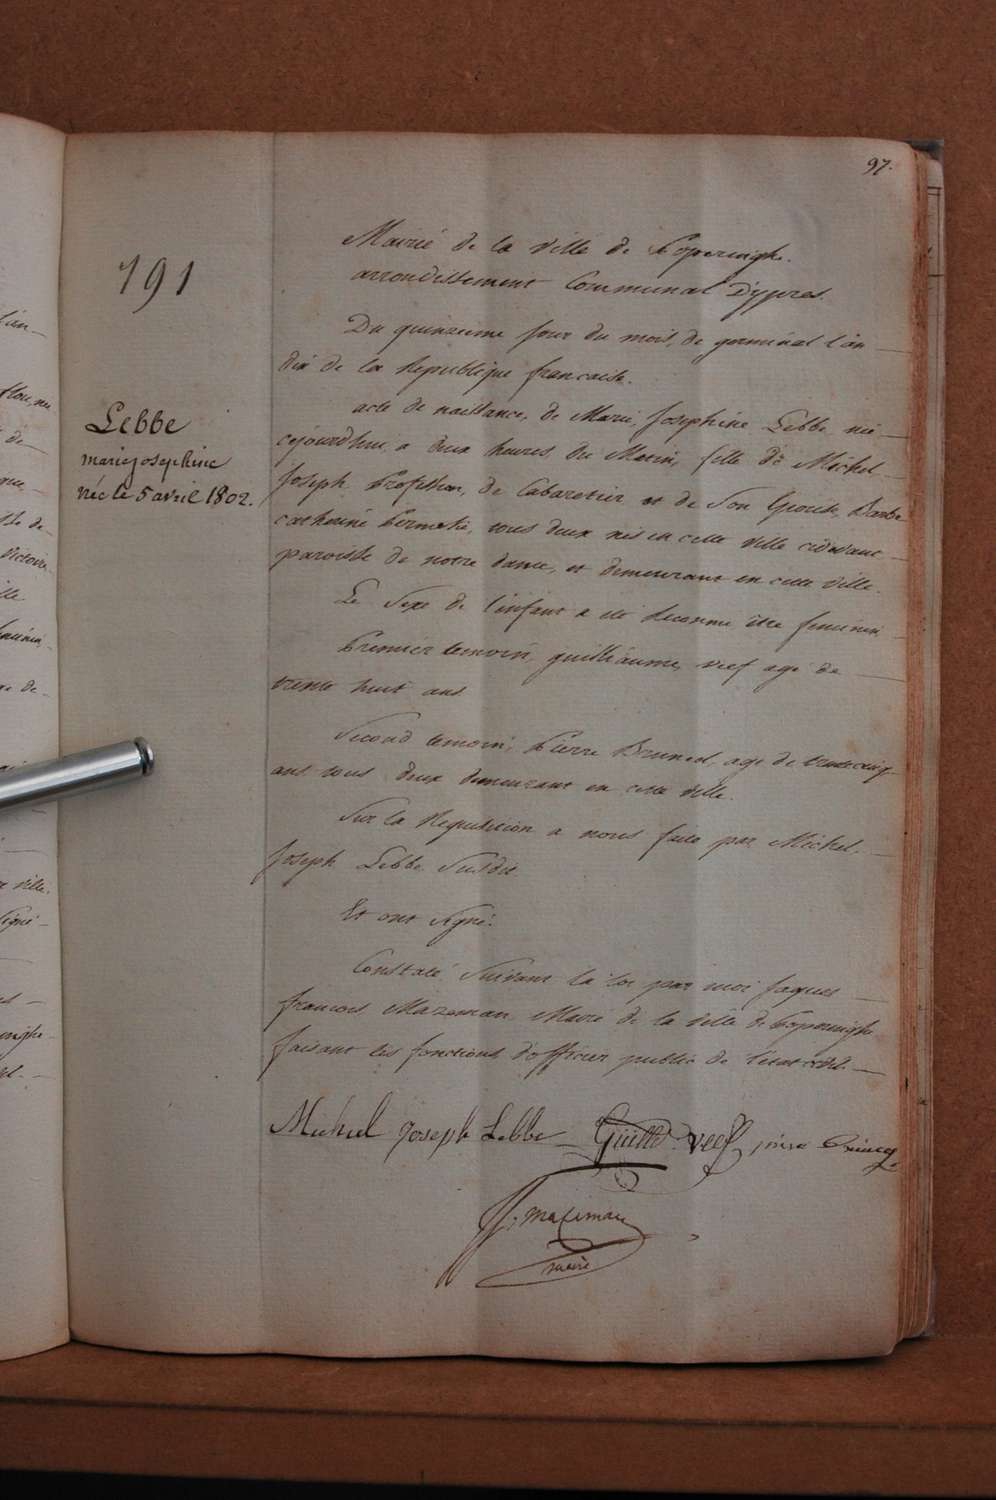 97.
191
Lebbe
marie josephine
née le 5 avril 1802.
Mairie de la ville de Poperinghe.
arrondissement Communal D'ypres.
Du quinzieme jour du mois, de germinal l'an
dix de la Republique francaise.
acte de naissance, de Marie, Josephine Lebbe née
cejourdhui, a deux heures du Matin, fille de Michel
Joseph Profession, de Cabaretier et de Son Epouse, Barbe
catherine tous deux nés en cette ville cidevant
paroisse de notre dame, et demeurant en cette ville.
Le Sexe de l'enfant a été Reconnu être feminin
Premier temoin, guilliaume, veef agé de
trente huit ans
Second temoin, Pierre agé de trentecinq
ans tous deux demeurant en cette ville.
Sur la Requisition a nous faite par Michel
Joseph Lebbe Susdit
Et ont signé.
Constaté Suivant la loi par moi Jaques
francois Mazeman Maire de la ville de Poperinghe
faisant les fonctions d'officier public de l'état civil.
Michiel Joseph Lebbe Guille veef
mazeman
maire